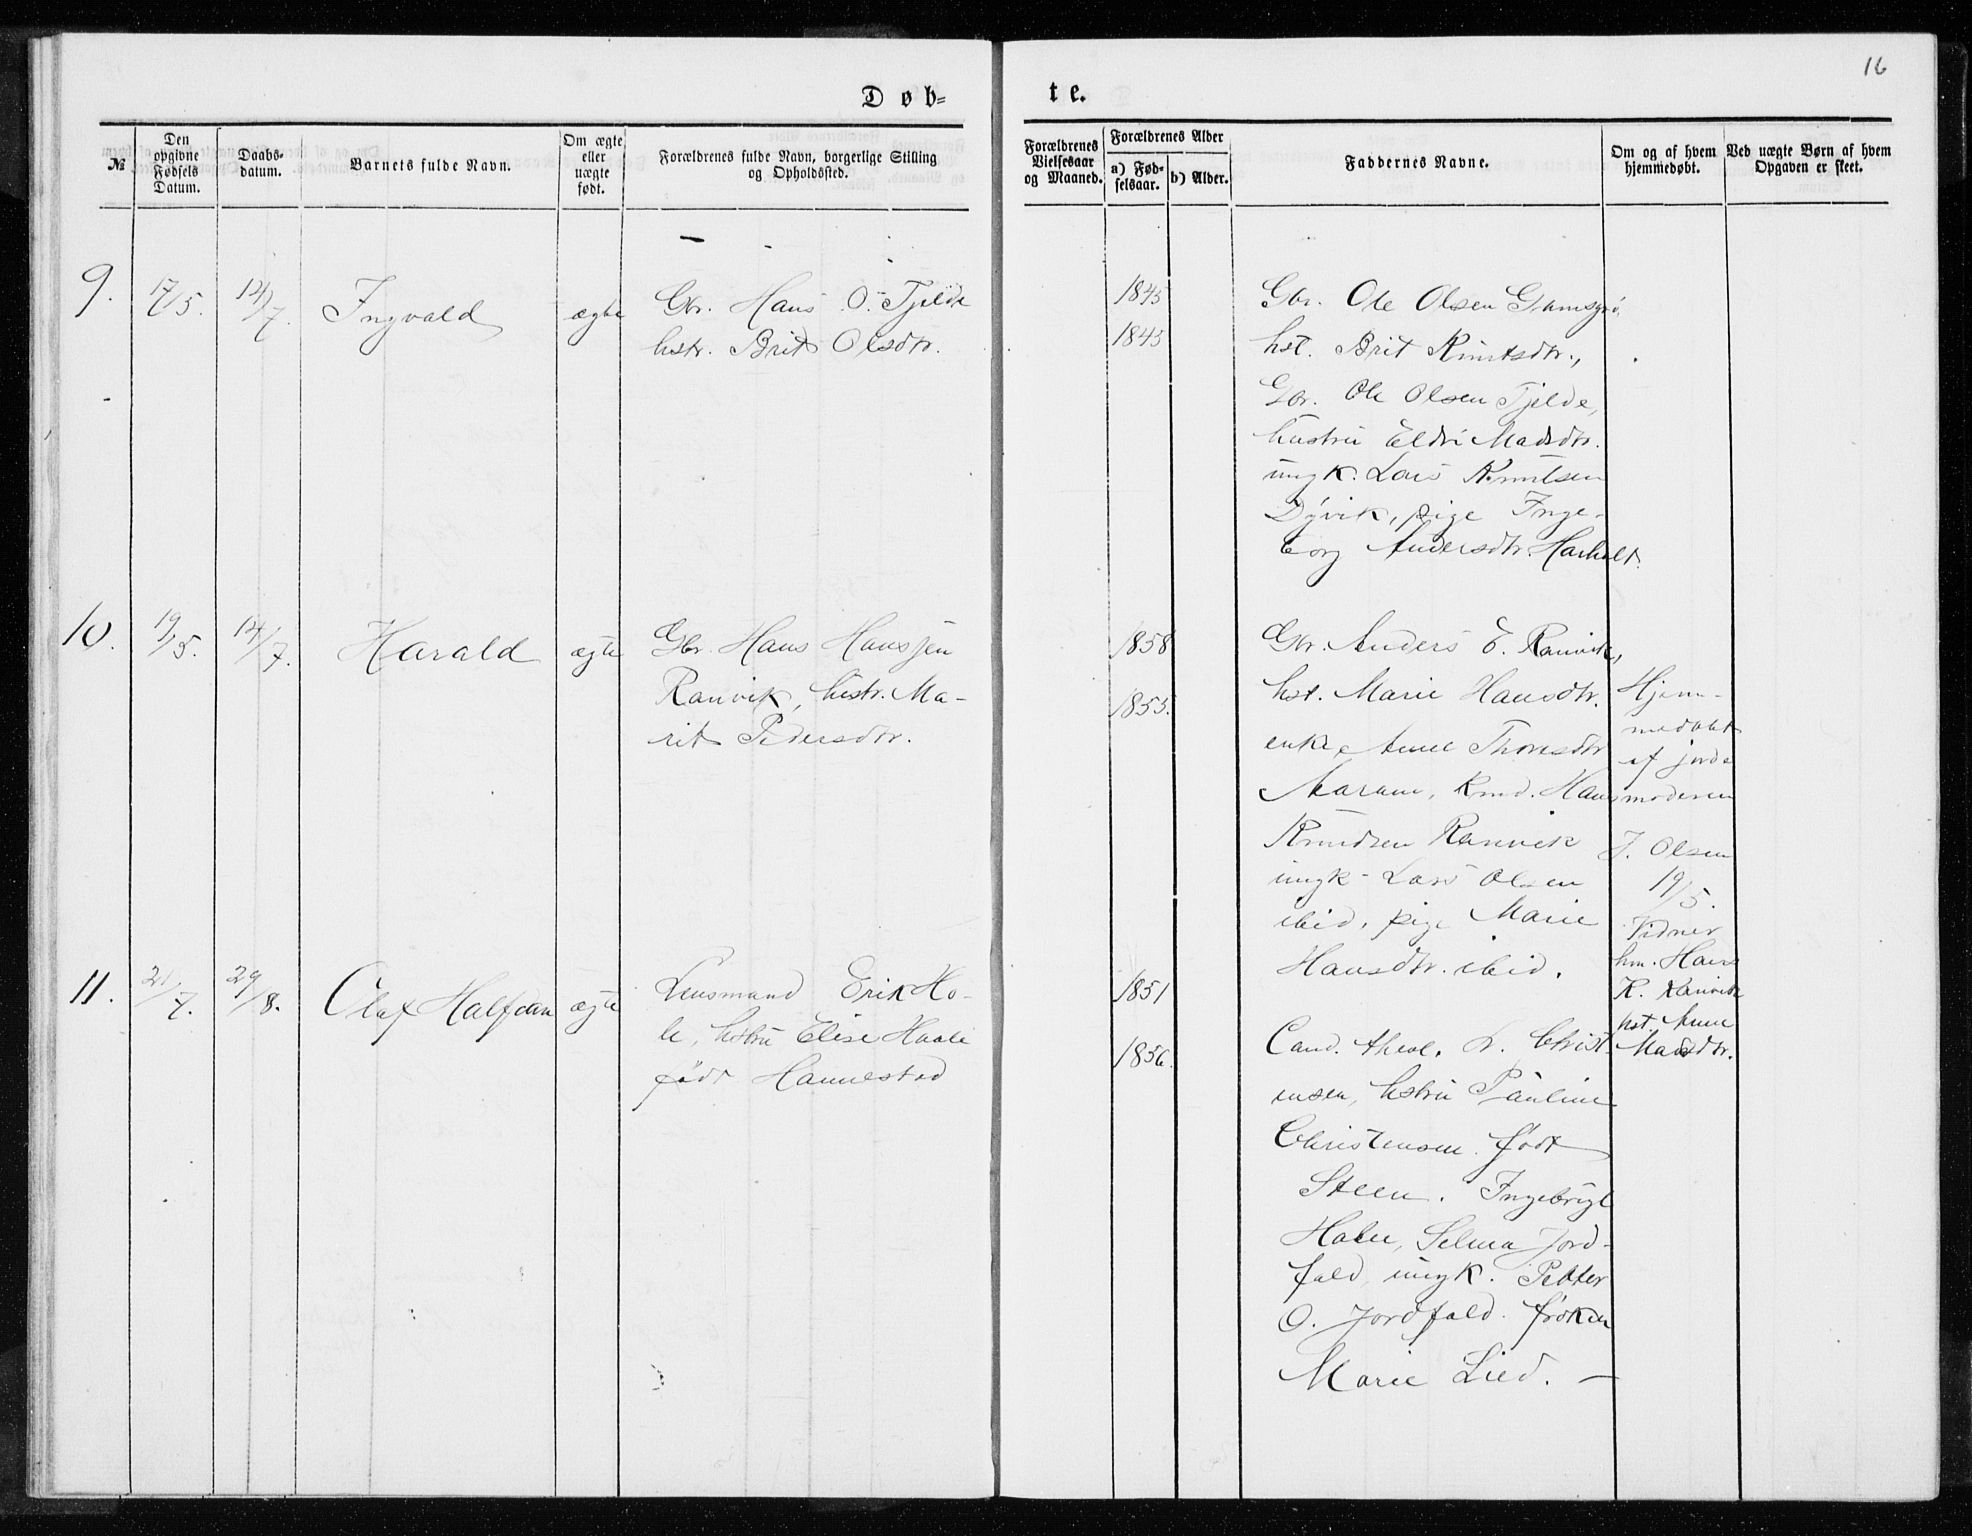 16
Døb-
te.
№
Den opgivne Fødsels Datum.
Daabs-datum.
Barnets fulde Navn.
Om ægte eller uægte født.
Forældrenes fulde Navn, borgerlige Stilling og Opholdssted.
Forældrenes Vielsesaar og Maaned.
Forældrenes Alder
a) Fød-selsaar.
b) Alder.
Faddernes Navne.
Om og af hvem hjemmedøbt.
Ved uægte Børn af hvem Opgaven er skeet.
9.
17/5.
14/7.
Ingvald
ægte
Gbr. Hans O. Tjelde
hstr. Brit Olsdtr.
1845
1845
Gbr. Ole Olsen
hst. Brit Knutsdtr.,
Gbr. Ole Olsen Tjelde,
hustru Eldri Madsdtr.
ungk. Lars Knutsen
Dyvik, pige Inge-
borg Andersdtr.
10.
19/5.
14/7.
Harald
ægte
Gbr. Hans Hansen
Ranvik, hustr. Ma-
rit Pedersdtr.
1858
1853.
Gbr. Anders E. Ranvik,
hst. Marie Hansdtr.
enke Anne Thoresdtr
Hans
Knudsen Ranvik
ungk. Lars Olsen
ibid, pige Marie
Hansdtr. ibid.
Hjem-
medøbt
af jorde
moderen
J. Olsen
19/5.
Vidner
hm. Hans
K. Ranvik
hst. Anne
Madsdtr.
11.
21/7.
29/8.
Olaf Halfdan
ægte
Lensmand Erik Ho-
le, hstru Elise Hole
født Hannestad
1851
1856.
Cand. theol. L. Christ-
ensen, hstru Pauline
Christensen født
Steen. Ingebrigt
Halse, Selma Jord-
fald, ungk. Petter
O. Jordfald. frøken
Marie Lied. —